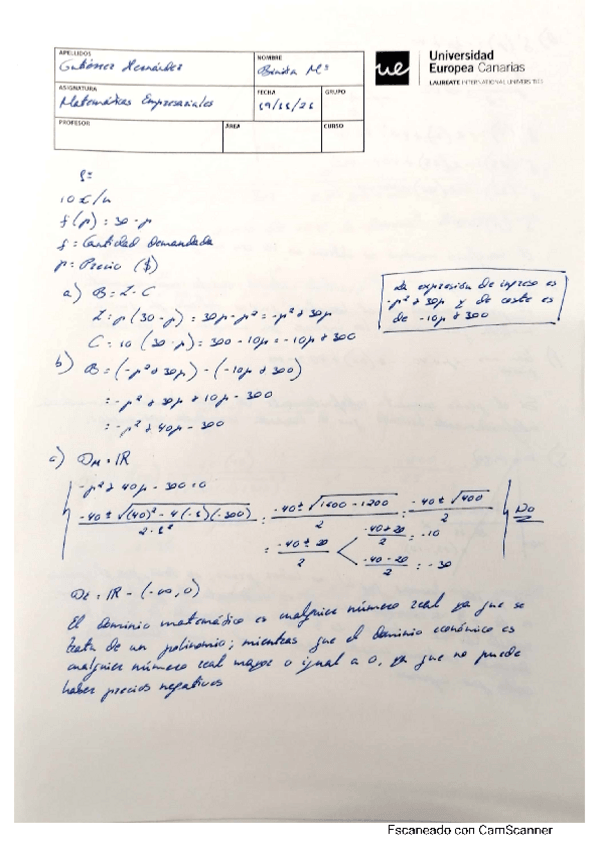 APELLIDOS
Gutiérrez Hernández
NOMBRE
Benita Mª
ASIGNATURA
Matemáticas Empresariales
FECHA
GRUPO
PROFESOR
ÁREA
CURSO
ue
Universidad
Europea Canarias
LAUREATE INTERNATIONAL UNIVERSITIES
10 €/u
f(p) = 30 - p
f = Cantidad demandada
p = Precio ($)
a) B = I - C
I = p (30 - p) = 30p - p² = -p² + 30p
C = 10 (30 - p) = 300 - 10p = -10p + 300
La expresión de ingreso es
-p² + 30p y de coste es
de -10p + 300
b) B = (-p² + 30p) - (-10p + 300)
= -p² + 30p + 10p - 300
= -p² + 40p - 300
c) Dm = IR
-p² + 40p - 300 = 0
-40 ± √(40)² - 4(-1)(-300) / 2·1² = -40 ± √1600 - 1200 / 2 = -40 ± √400 / 2 No
= -40 ± 20 / 2
-40+20 / 2 = -10
-40-20 / 2 = -30
De = IR - (-∞, 0)
El dominio matemático es cualquier número real ya que se
trata de un polinomio; mientras que el dominio económico es
cualquier número real mayor o igual a 0, ya que no puede
haber precios negativos
Escaneado con CamScanner